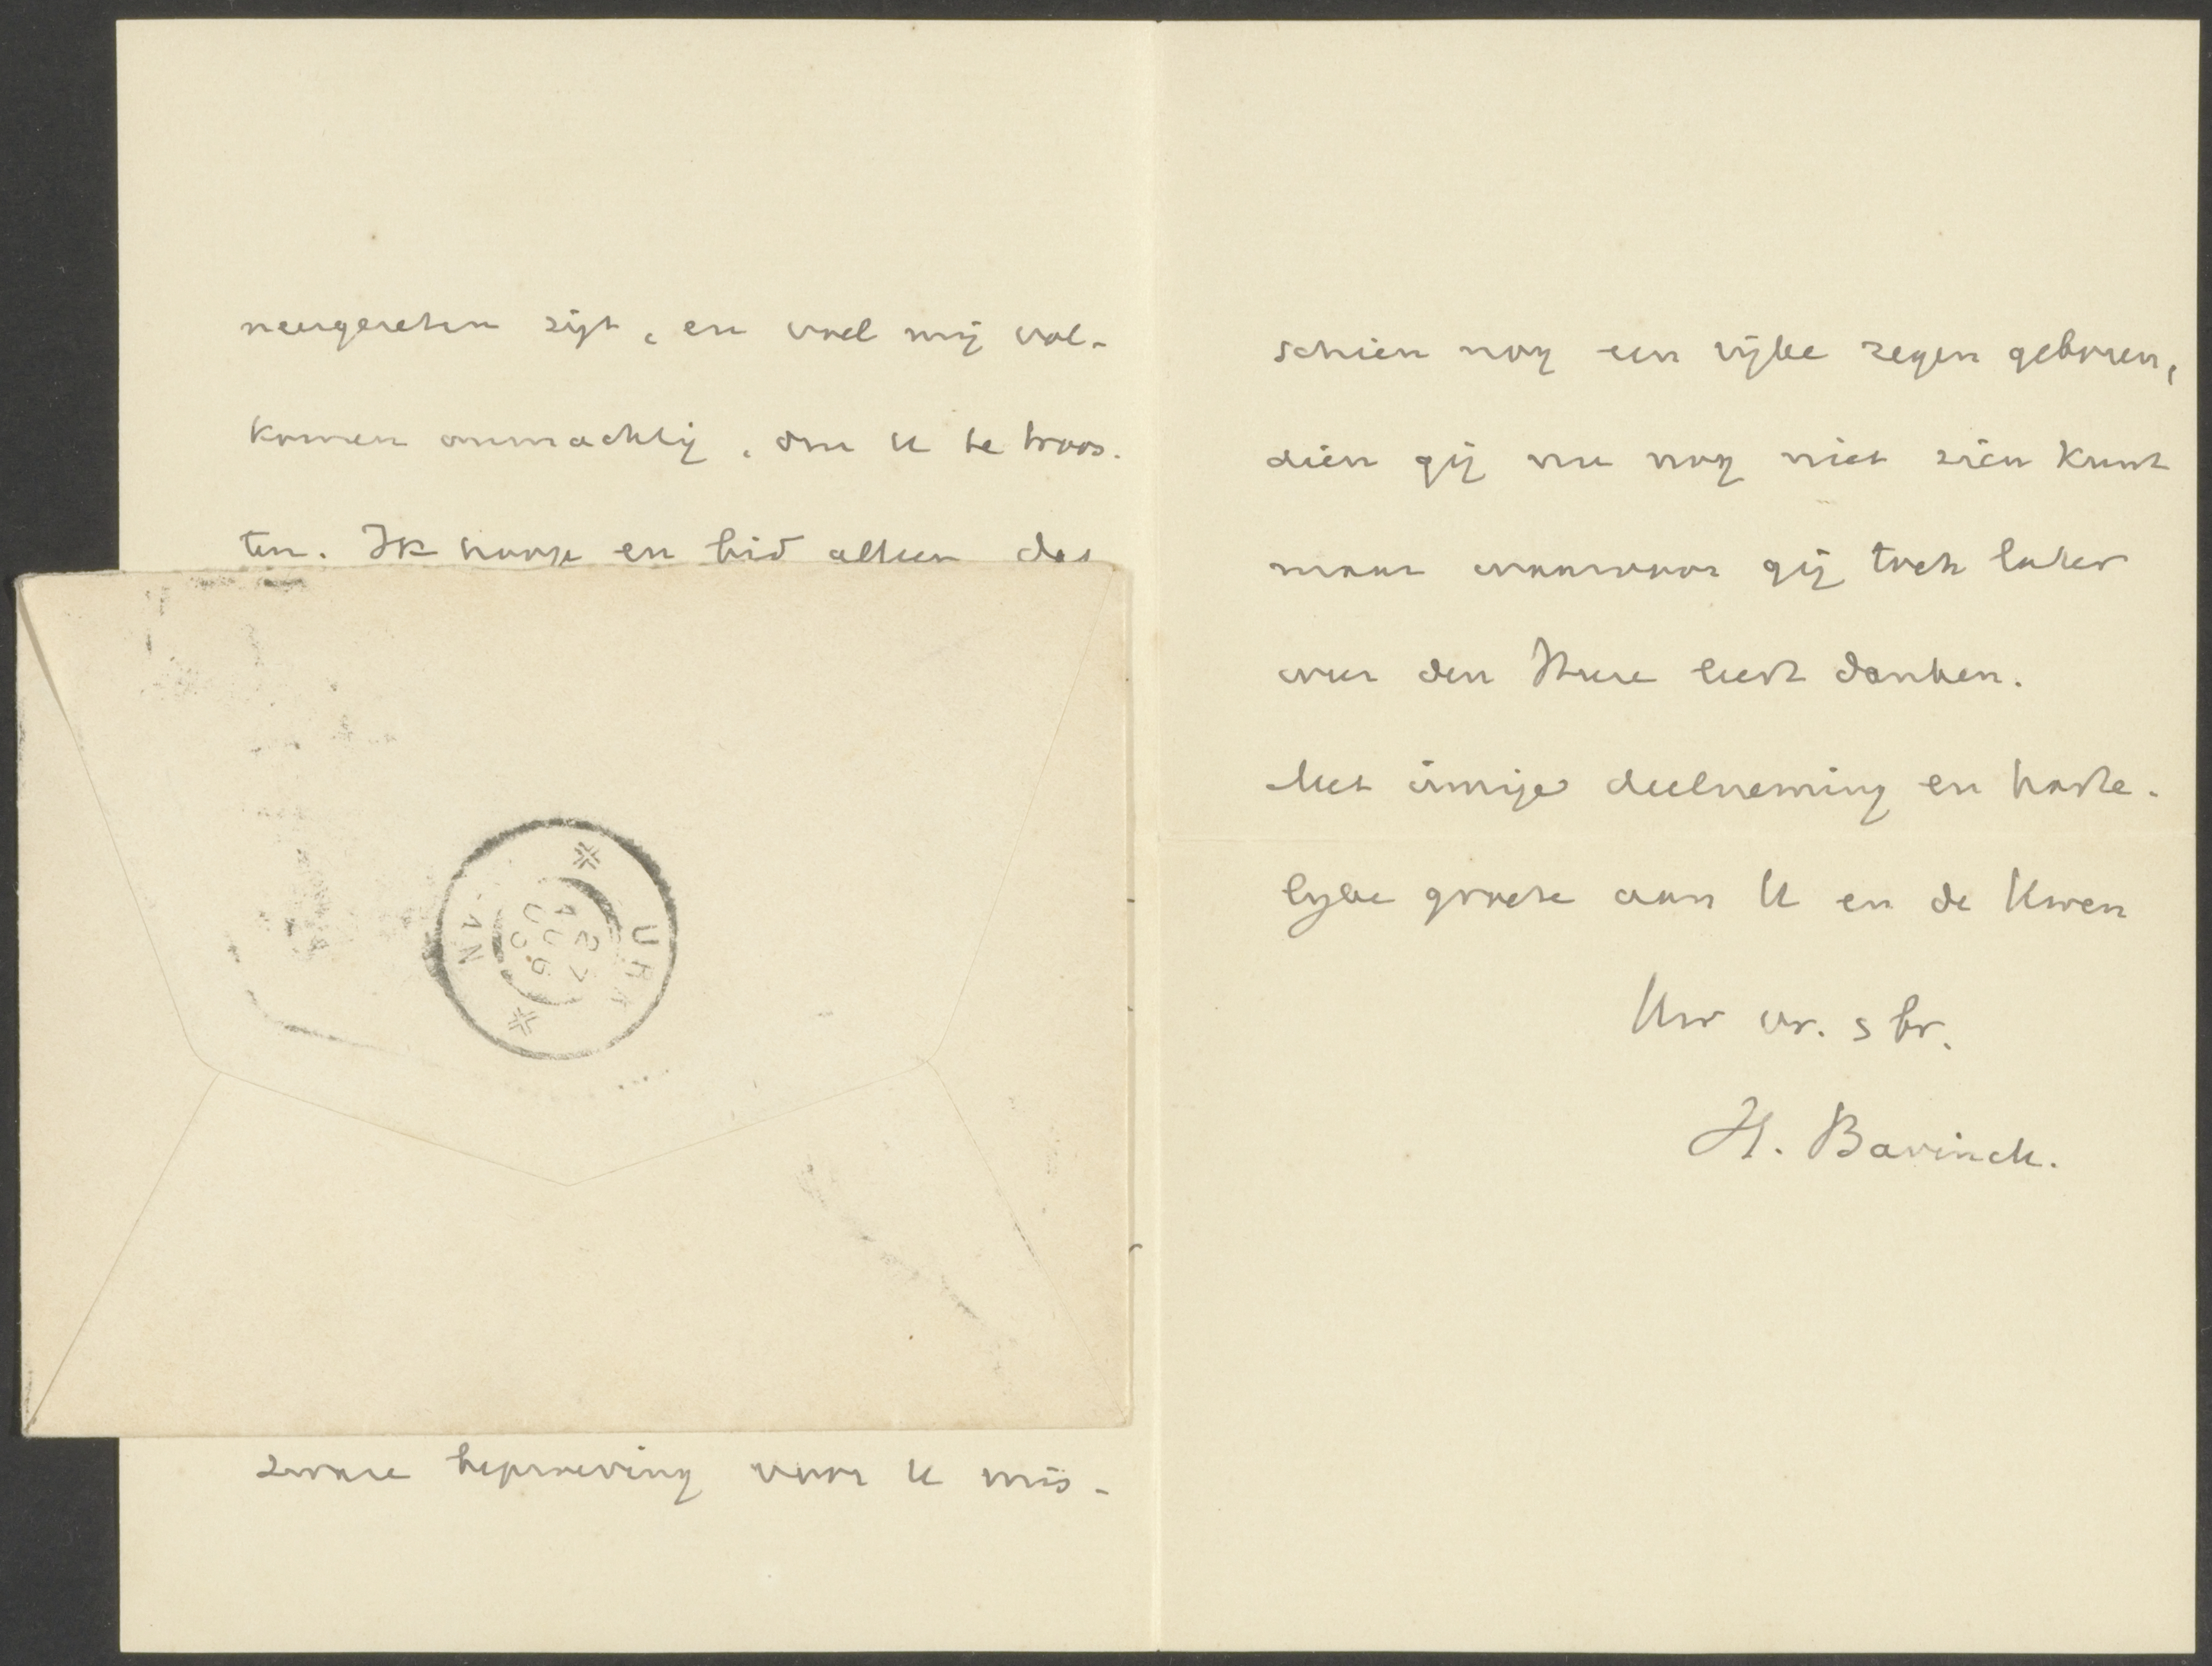 neergezeten zijt, en voel mij vol-
komen onmachtig, om U te troos-
ten. Ik hoop en bid alleen dat
zware beproeving voor U mis-
schien nog een rijke zegen geboren,
dien gij nu nog niet zien kunt
maar waarvoor gij toch later
weer den Heere leert danken.
Met innige deelneming en harte-
lijke groete aan U en de Uwen
Uw vr. & br.
H. Bavinck.
URK
27
AUG
06